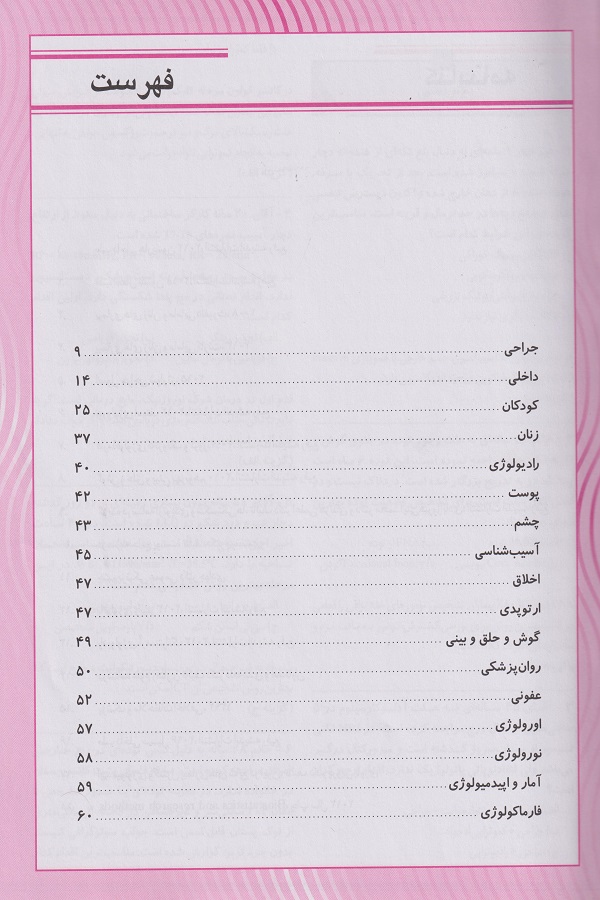 فهرست
جراحی ۹
داخلی ۱۴
کودکان ۲۵
زنان ۳۷
رادیولوژی ۴۰
پوست ۴۲
چشم ۴۳
آسیب‌شناسی ۴۵
اخلاق ۴۷
ارتوپدی ۴۷
گوش و حلق و بینی ۴۹
روان‌پزشکی ۵۰
عفونی ۵۲
اورولوژی ۵۷
نورولوژی ۵۸
آمار و اپیدمیولوژی ۵۹
فارماکولوژی ۶۰